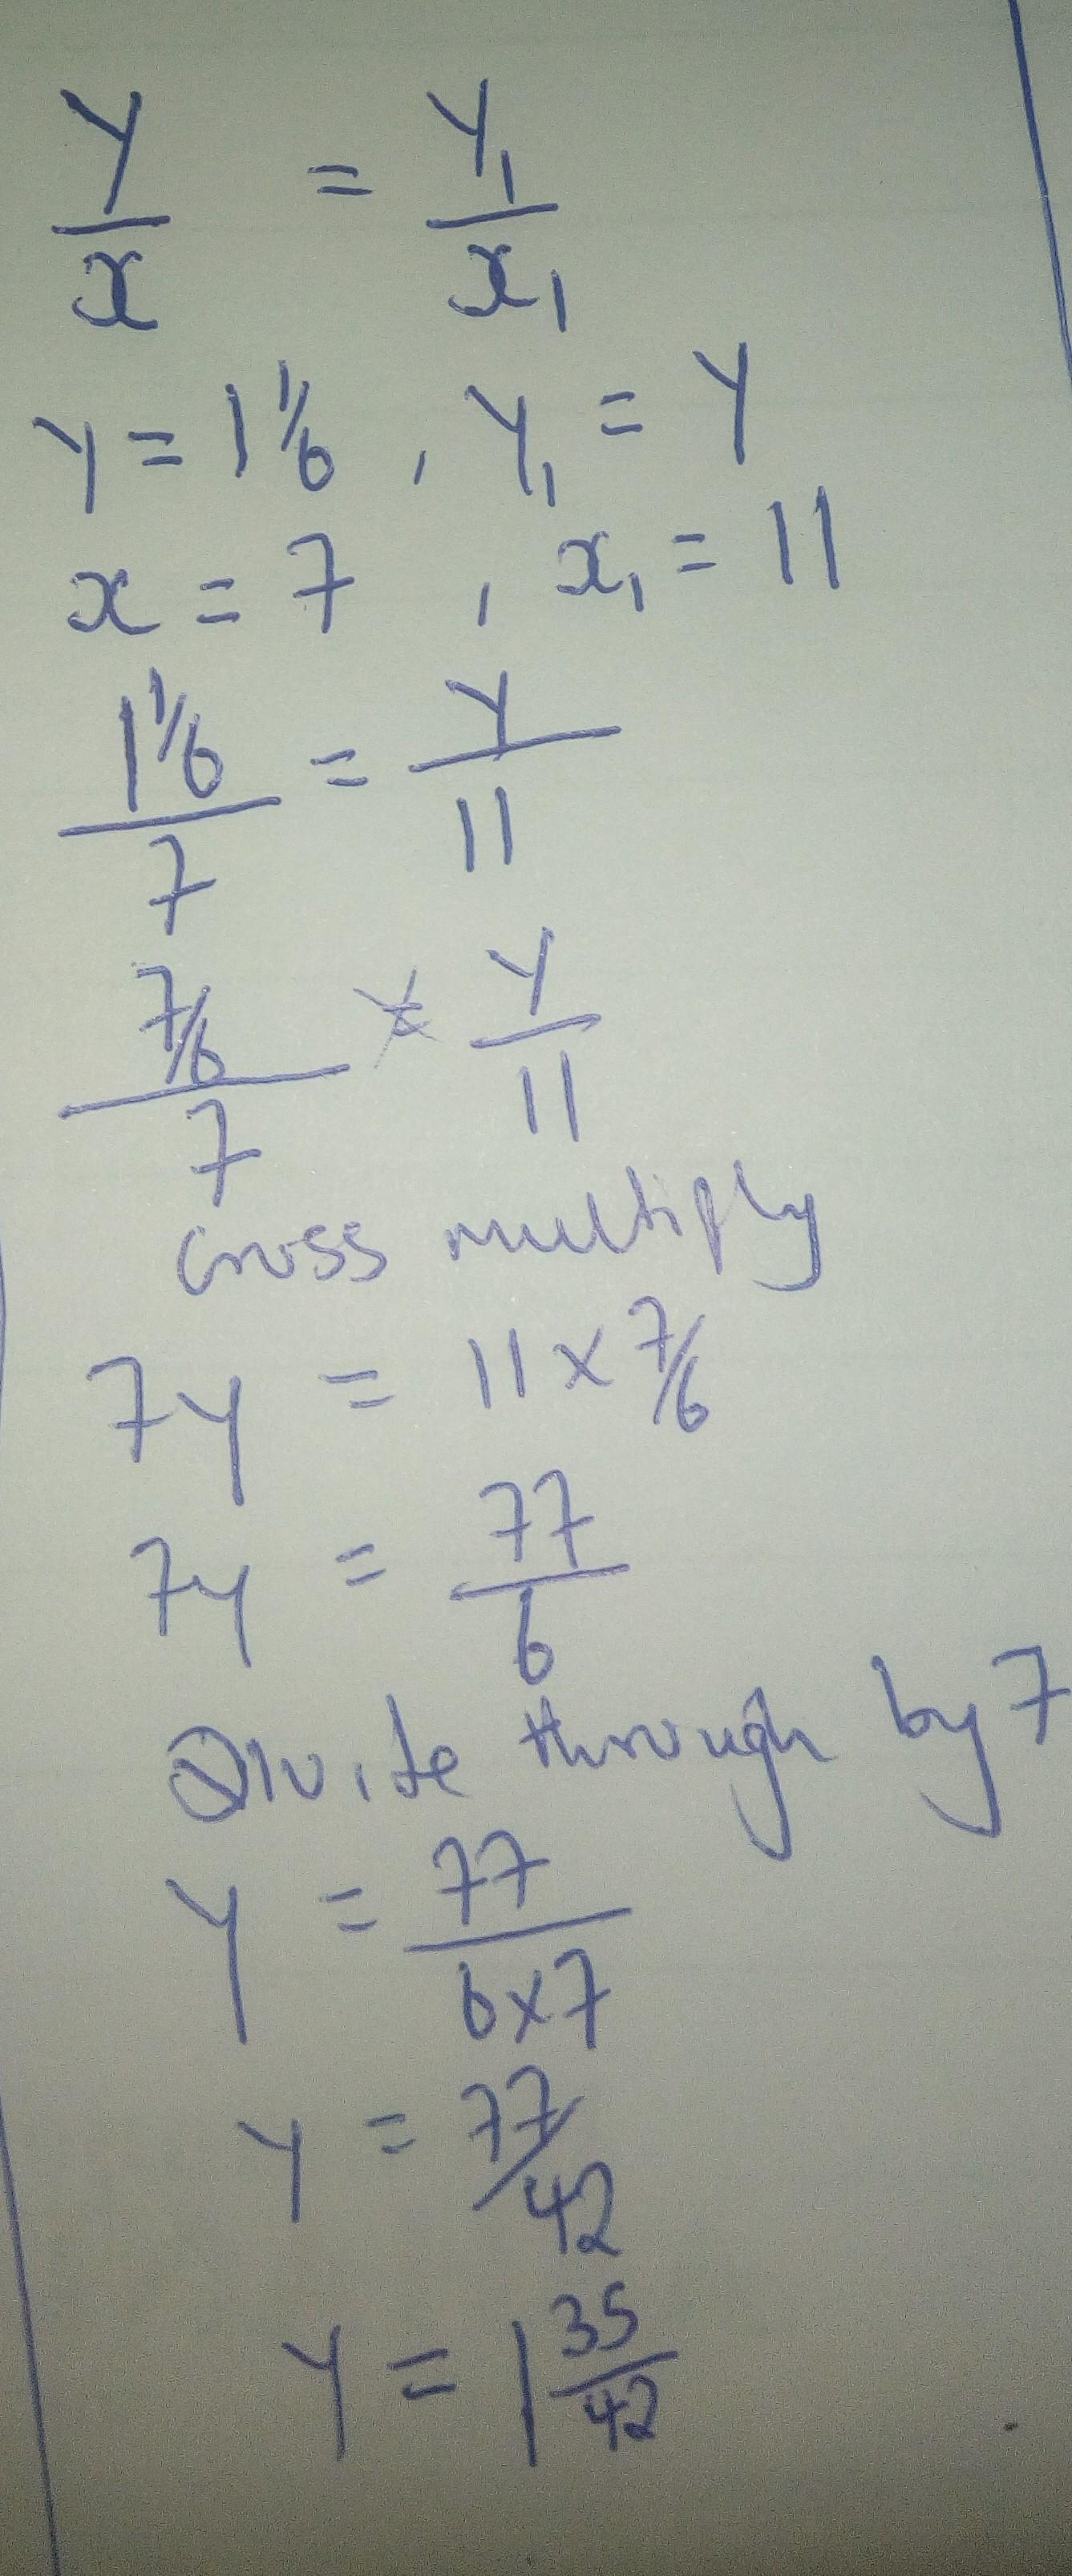 y/x = y₁/x₁
y = 1 1/6 , y₁ = y
x = 7 , x₁ = 11
1 1/6 / 7 = y/11
7/6 / 7 = y/11
Cross multiply
7y = 11 × 7/6
7y = 77/6
Divide through by 7
y = 77/6×7
y = 77/42
y = 1 35/42